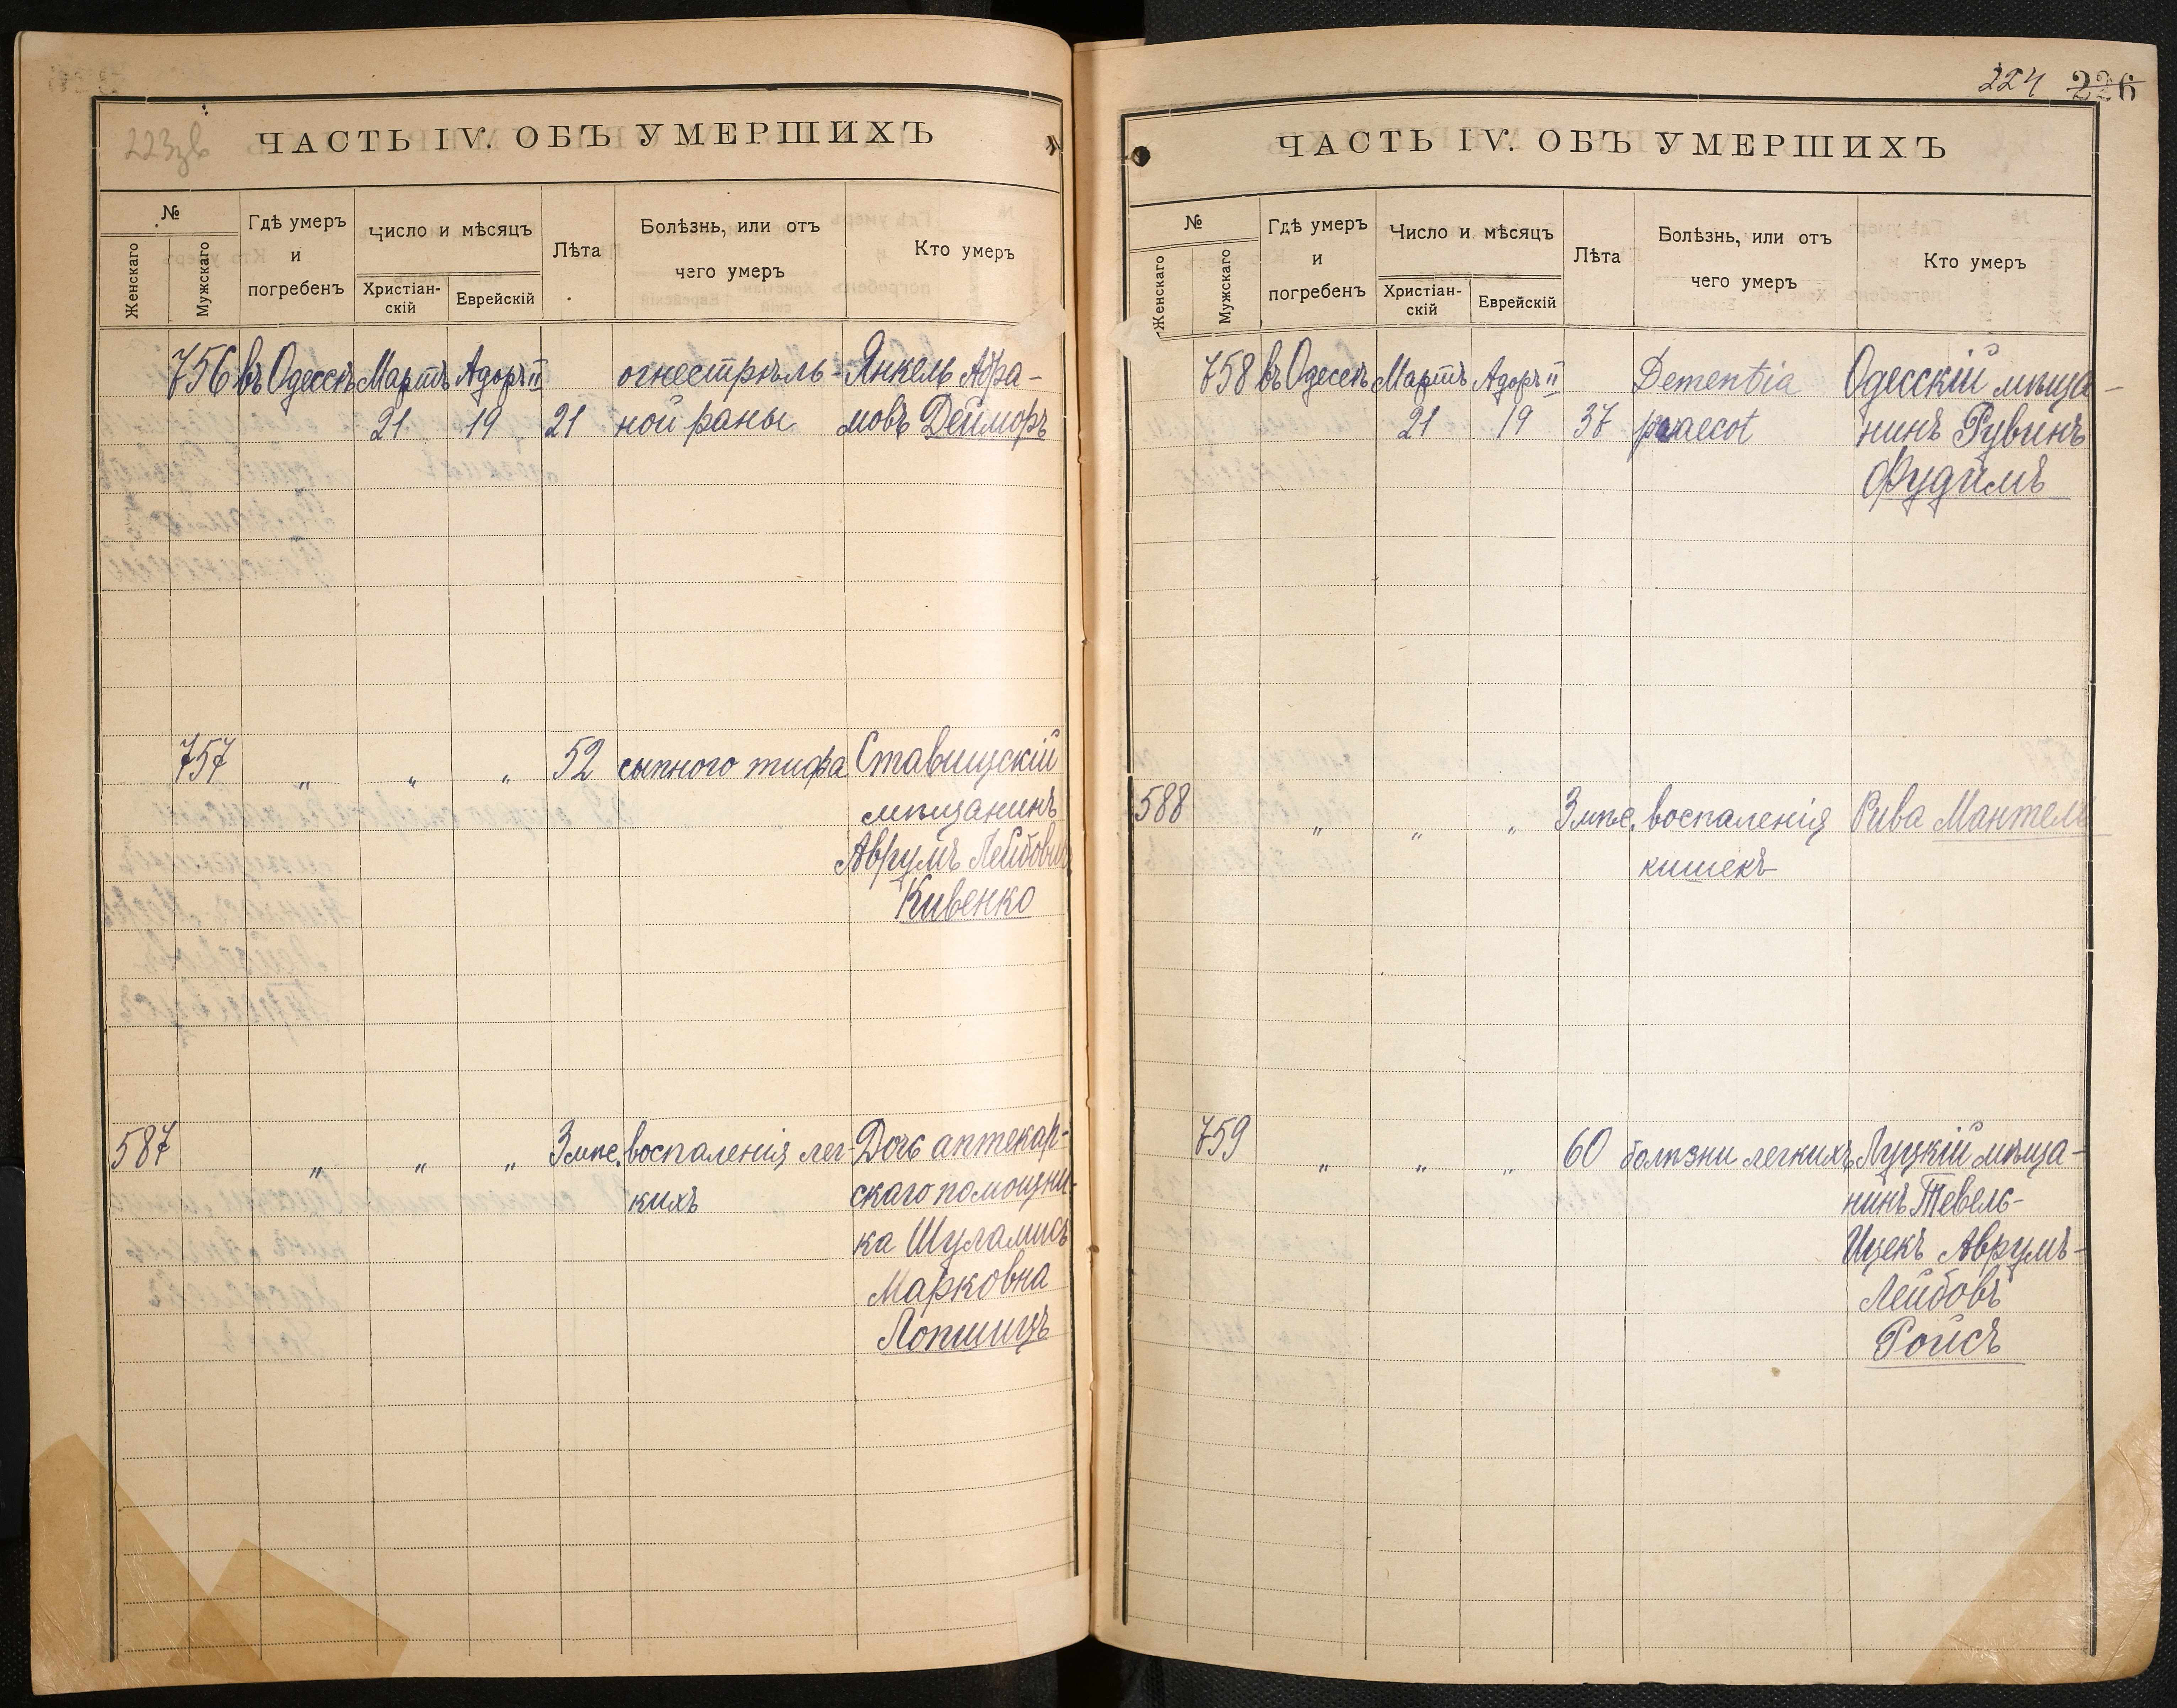 223зв
ЧАСТЬ IV. ОБЪ УМЕРШИХЪ
№
Женскаго
Мужскаго
Гдѣ умеръ
и
погребенъ
Число и мѣсяцъ
Христіан-
скій
Еврейскій
Лѣта
Болѣзнь, или отъ
чего умеръ
Кто умеръ
756 въ Одессѣ Мартъ Адоръ II огнестрѣль- Янкель Абра-
21 19 21 ной раны мовъ Дейморъ
757 „ „ „ 52 сыпного тифа Ставищскій
мѣщанинъ
Аврумъ Лейбовъ
Кивенко
587 „ „ „ 3 мѣс. воспаленія лег- Дочь аптекар-
кихъ скаго помощни-
ка Шуламись
Марковна
Лопшицъ
224 226
ЧАСТЬ IV. ОБЪ УМЕРШИХЪ
№
Женскаго
Мужскаго
Гдѣ умеръ
и
погребенъ
Число и мѣсяцъ
Христіан-
скій
Еврейскій
Лѣта
Болѣзнь, или отъ
чего умеръ
Кто умеръ
758 въ Одессѣ Мартъ Адоръ II Dementia Одесскій мѣща-
21 19 37 praecot нинъ Рувинъ
Фудимъ
588 „ „ „ 3 мѣс. воспаленія Рива Мантель
кишекъ
759 „ „ „ 60 болѣзни легкихъ Луцкій мѣща-
нинъ Тевель-
Ицекъ Аврумъ-
Лейбовъ
Ройсъ